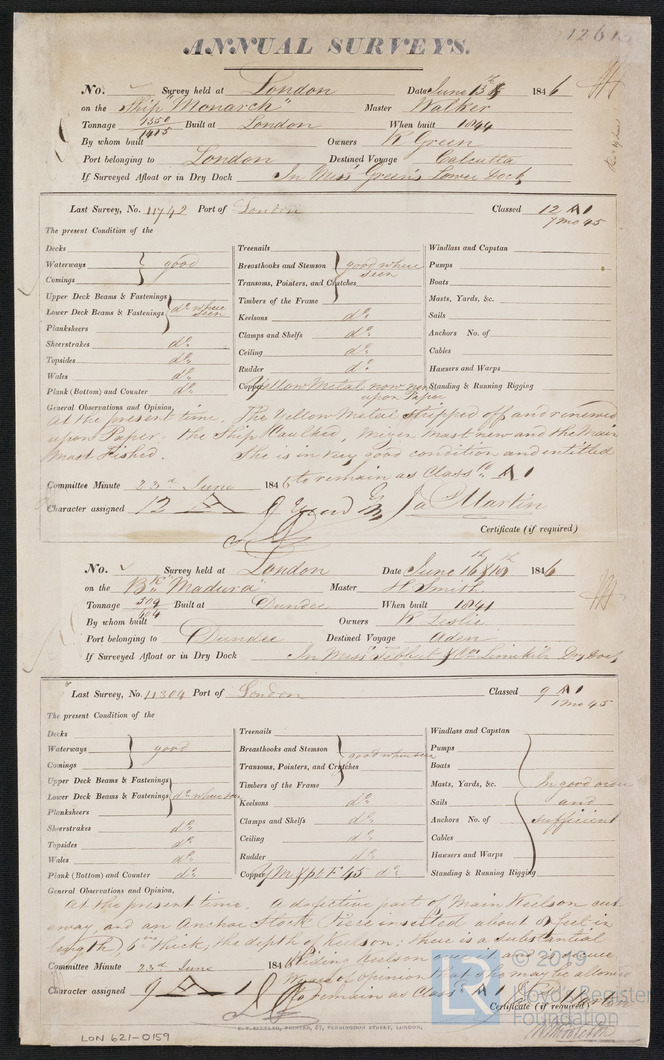 ANNUAL SURVEYS.
No. Survey held at London Date June 13th 1846
on the Ship "Monarch" Master Walker
Tonnage 1350 1415 Built at London When built 1844
By whom built Owners R Green
Port belonging to London Destined Voyage Calcutta
If Surveyed Afloat or in Dry Dock In Mess. Green's Lower Dock
Last Survey, No. 11742 Port of London Classed 12 A 1
7 Mo 45
The present Condition of the
Decks
Waterways good
Comings
Upper Deck Beams & Fastenings
Lower Deck Beams & Fastenings do where seen
Planksheers
Sheerstrakes do
Topsides do
Wales do
Plank (Bottom) and Counter do
Treenails
Breasthooks and Stemson good where seen
Transoms, Pointers, and Crutches
Timbers of the Frame
Keelsons do
Clamps and Shelfs do
Ceiling do
Rudder do
Copper Yellow Metal now new upon Paper
Windlass and Capstan
Pumps
Boats
Masts, Yards, &c.
Sails
Anchors No. of
Cables
Hawsers and Warps
Standing & Running Rigging
General Observations and Opinion,
At the present time, The Yellow Metal stripped off and renewed
upon Paper, the Ship Caulked, Mizen Mast new and the Main
Mast Fished. She is in very good condition and entitled
to remain as Class'd A 1
Committee Minute 23rd June 1846
Character assigned 12 A Martin
Certificate (if required)
No. Survey held at London Date June 16th & 18th 1846
on the Bk "Madura" Master H Smith
Tonnage 309 404 Built at Dundee When built 1841
By whom built Owners R Leslie
Port belonging to Dundee Destined Voyage Aden
If Surveyed Afloat or in Dry Dock In Mess. Dry Dock
Last Survey, No. 11304 Port of London Classed 9 A 1
1 Mo 45
The present Condition of the
Decks
Waterways good
Comings
Upper Deck Beams & Fastenings
Lower Deck Beams & Fastenings do where seen
Planksheers
Sheerstrakes do
Topsides do
Wales do
Plank (Bottom) and Counter do
Treenails
Breasthooks and Stemson good where seen
Transoms, Pointers, and Crutches
Timbers of the Frame
Keelsons do
Clamps and Shelfs do
Ceiling do
Rudder do
Copper 45 do
Windlass and Capstan
Pumps
Boats
Masts, Yards, &c. In good order
Sails and
Anchors No. of sufficient
Cables
Hawsers and Warps
Standing & Running Rigging
General Observations and Opinion,
At the present time. A defective part of Main Keelson cut
away, and an Anchor Stock Piece inserted about 8 feet in
length, 6 in thick, the depth of Keelson: there is a substantial
Riding Keelson
of opinion that she may be allowed
to remain as Class'd A 1
Committee Minute 23rd June 184
Character assigned 9 A 1
Certificate (if required)
LONDON,
LON 621-0159
© 2019
Lloyd's Register
Foundation
LR